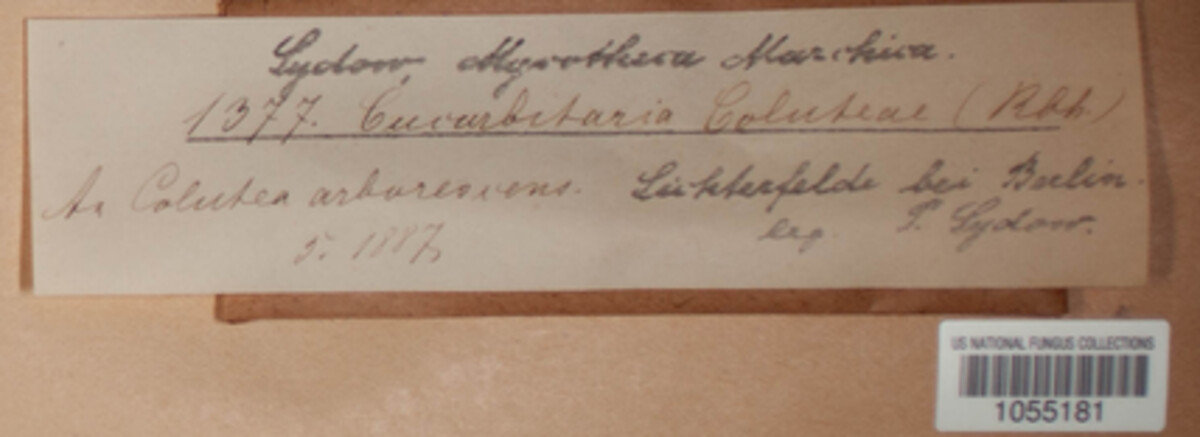 Sydow, Mycotheca Marchica.
1377. Cucurbitaria Coluteae (Rbh.)
An Colutea arborescens. Lichterfelde bei Berlin.
5. 1887, leg. P. Sydow.
US NATIONAL FUNGUS COLLECTIONS
1055181